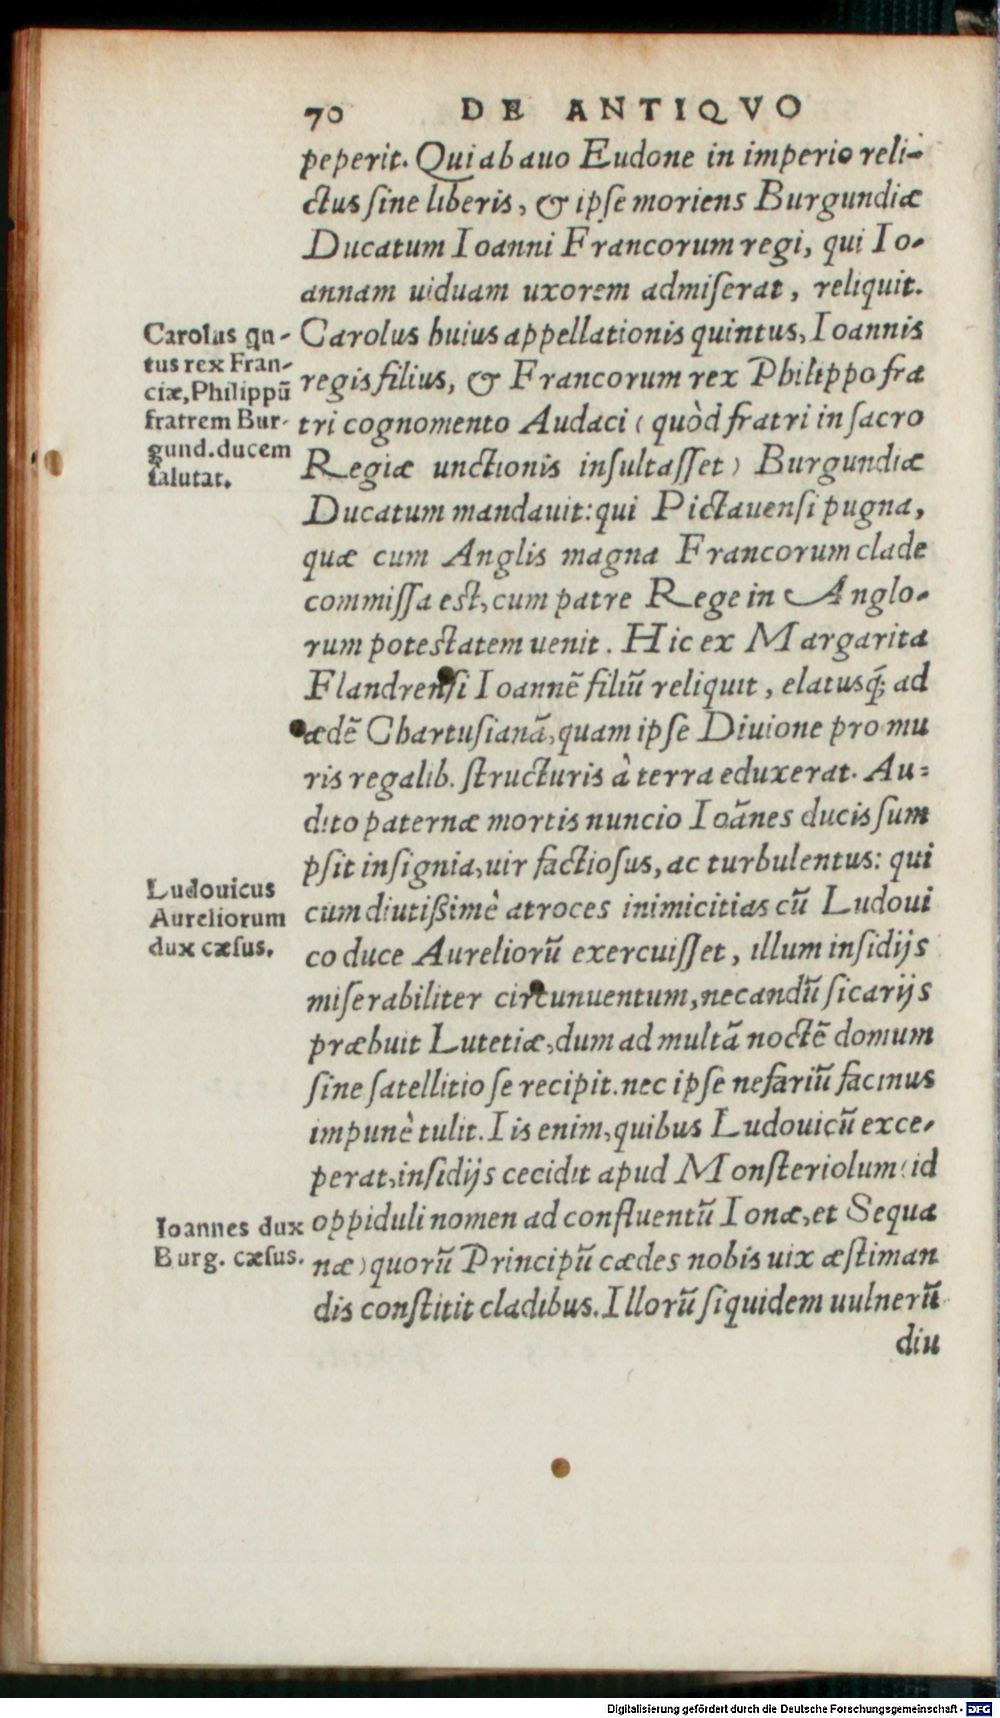 70 DE ANTIQVO
peperit. Qui ab auo Eudone in imperio reli-
ctus sine liberis, & ipse moriens Burgundiæ
Ducatum Ioanni Francorum regi, qui Io-
annam uiduam uxorem admiserat, reliquit.
Carolus huius appellationis quintus, Ioannis
regis filius, & Francorum rex Philippo fra
tri cognomento Audaci (quòd fratri in sacro
Regiæ unctionis insultasset) Burgundiæ
Ducatum mandauit: qui Pictauensi pugna,
quæ cum Anglis magna Francorum clade
commissa est, cum patre Rege in Anglo-
rum potestatem uenit. Hic ex Margarita
Flandrensi Ioannē filiū reliquit, elatusq́; ad
ædē Chartusianā, quam ipse Diuione pro mu
ris regalib. structuris à terra eduxerat. Au-
dito paternæ mortis nuncio Ioānes ducis sum
psit insignia, uir factiosus, ac turbulentus: qui
cum diutißimè atroces inimicitias cū Ludoui
co duce Aureliorū exercuisset, illum insidijs
miserabiliter circunuentum, necandū sicarijs
præbuit Lutetiæ, dum ad multā noctē domum
sine satellitio se recipit. nec ipse nefariū facinus
impunè tulit. Iis enim, quibus Ludouicū exce-
perat, insidijs cecidit apud Monsteriolum (id
oppiduli nomen ad confluentū Ionæ, et Sequa
næ) quorū Principū cædes nobis uix æstiman
dis constitit cladibus. Illorū siquidem uulnerū
diu
Carolus qn-
tus rex Fran-
ciæ, Philippū
fratrem Bur-
gund. ducem
salutat.
Ludouicus
Aureliorum
dux cæsus.
Ioannes dux
Burg. cæsus.
Digitalisierung gefördert durch die Deutsche Forschungsgemeinschaft - DFG